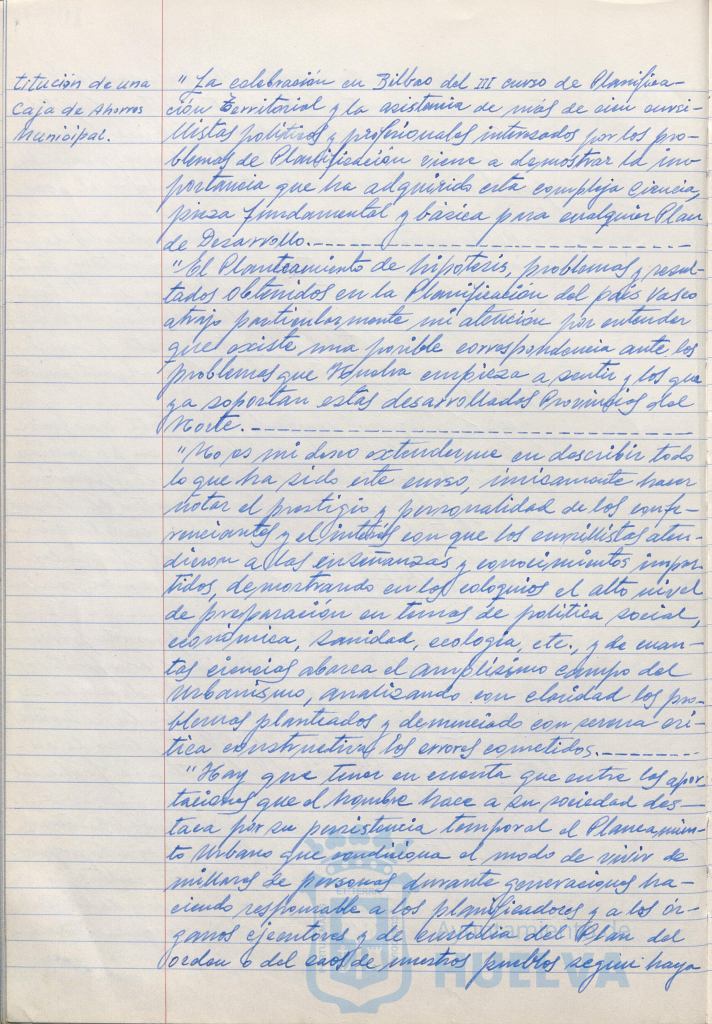 titución de una
Caja de Ahorros
Municipal.
"La celebración en Bilbao del III curso de Planifica-
ción Territorial y la asistencia de más de cien cursi-
llistas políticos y profesionales interesados por los pro-
blemas de Planificación viene a demostrar la im-
portancia que ha adquirido esta compleja Ciencia,
pieza fundamental y básica para cualquier Plan
de Desarrollo.
"El Planteamiento de hipótesis, problemas y resul-
tados obtenidos en la Planificación del país Vasco
atrajo particularmente mi atención por entender
que existe una posible correspondencia ante los
problemas que Huelva empieza a sentir y los que
ya soportan estas desarrolladas Provincias del
Norte.
"No es mi deseo extenderme en describir todo
lo que ha sido este curso, unicamente hacer
notar el prestigio y personalidad de los confe-
renciantes y el interés con que los cursillistas aten-
dieron a las enseñanzas y conocimientos impar-
tidos, demostrando en los coloquios el alto nivel
de preparación en temas de política social,
económica, sanidad, ecología, etc., y de cuan-
tas ciencias abarca el amplísimo campo del
Urbanismo, analizando con claridad los pro-
blemas planteados y denunciado con serena crí-
tica constructiva los errores cometidos.
"Hay que tener en cuenta que entre las apor-
taciones que el hombre hace a su sociedad des-
taca por su persistencia temporal el Planeamien-
to Urbano que condiciona el modo de vivir de
millares de personas durante generaciones ha-
ciendo responsable a los planificadores y a los ór-
ganos ejecutores y de custodia del Plan del
orden o del caos de nuestros pueblos según haya
Ayuntamiento de
HUELVA